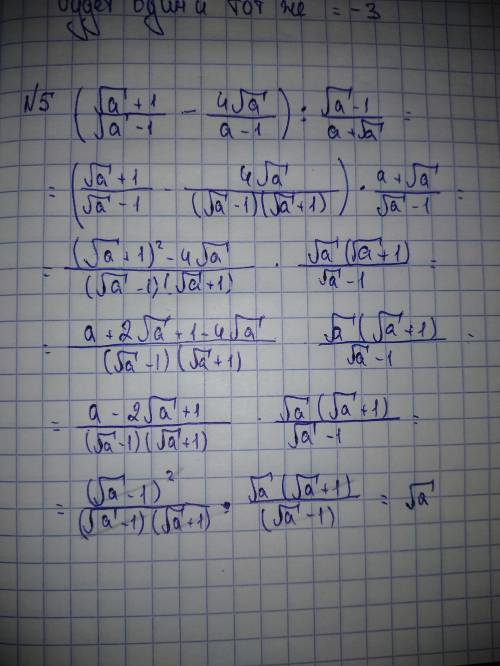 будет один и тот же = -3
№5 ( (√a + 1)/(√a - 1) - 4√a/(a - 1) ) : (√a - 1)/(a + √a) =
= ( (√a + 1)/(√a - 1) - 4√a/((√a - 1)(√a + 1)) ) · (a + √a)/(√a - 1) =
= ((√a + 1)² - 4√a)/((√a - 1)(√a + 1)) · √a (√a + 1)/(√a - 1) =
= (a + 2√a + 1 - 4√a)/((√a - 1)(√a + 1)) · √a (√a + 1)/(√a - 1) =
= (a - 2√a + 1)/((√a - 1)(√a + 1)) · √a (√a + 1)/(√a - 1) =
= (√a - 1)²/((√a - 1)(√a + 1)) · √a (√a + 1)/(√a - 1) = √a